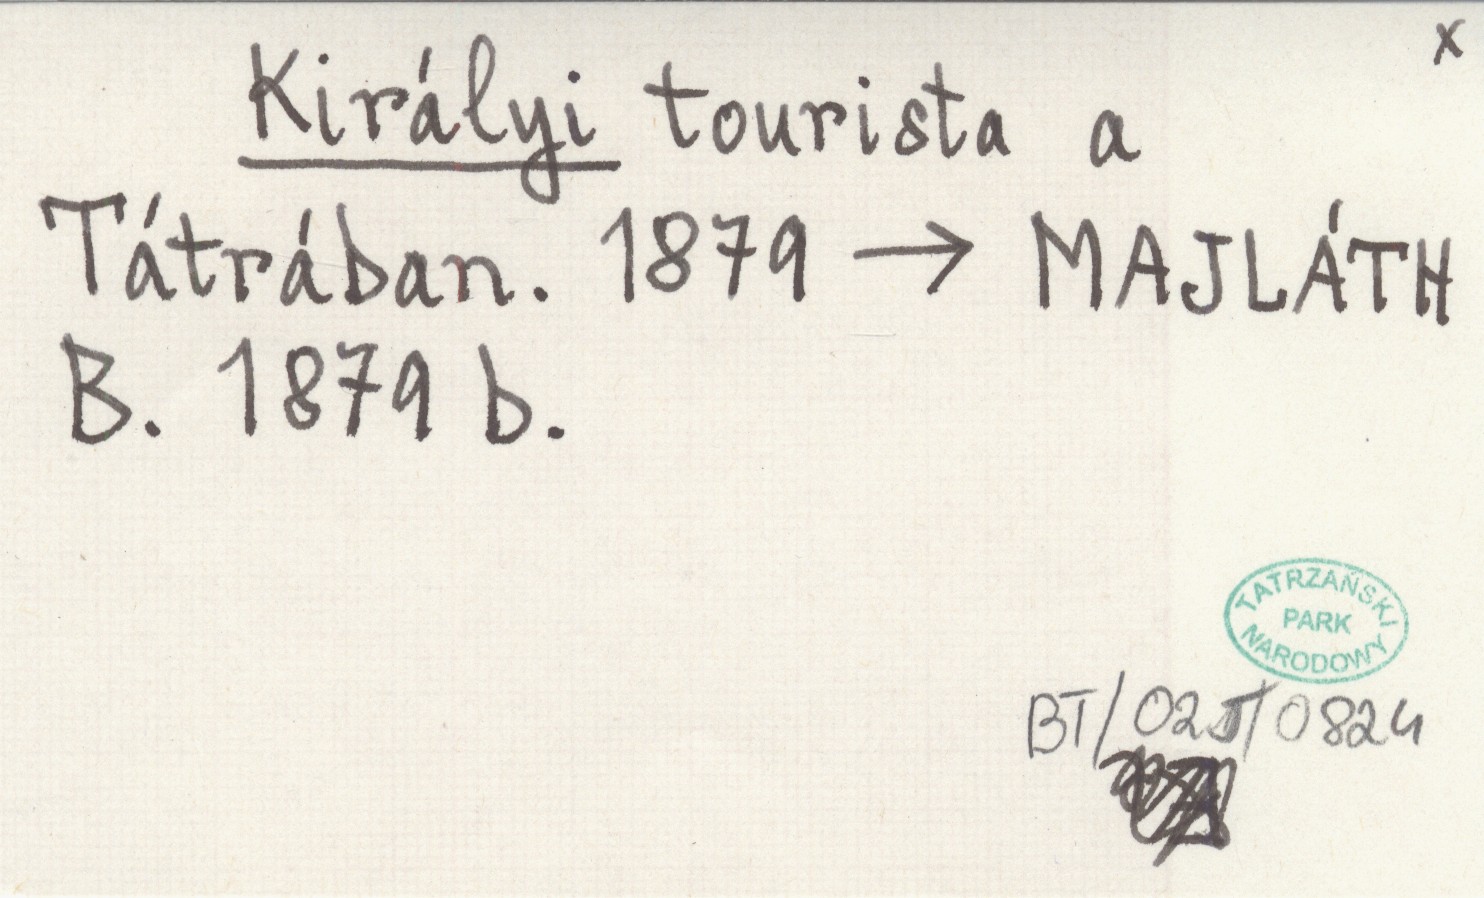 x
Királyi tourista a
Tátrában. 1879 → MAJLÁTH
B. 1879 b.
TATRZAŃSKI
PARK
NARODOWY
BT/025/0824